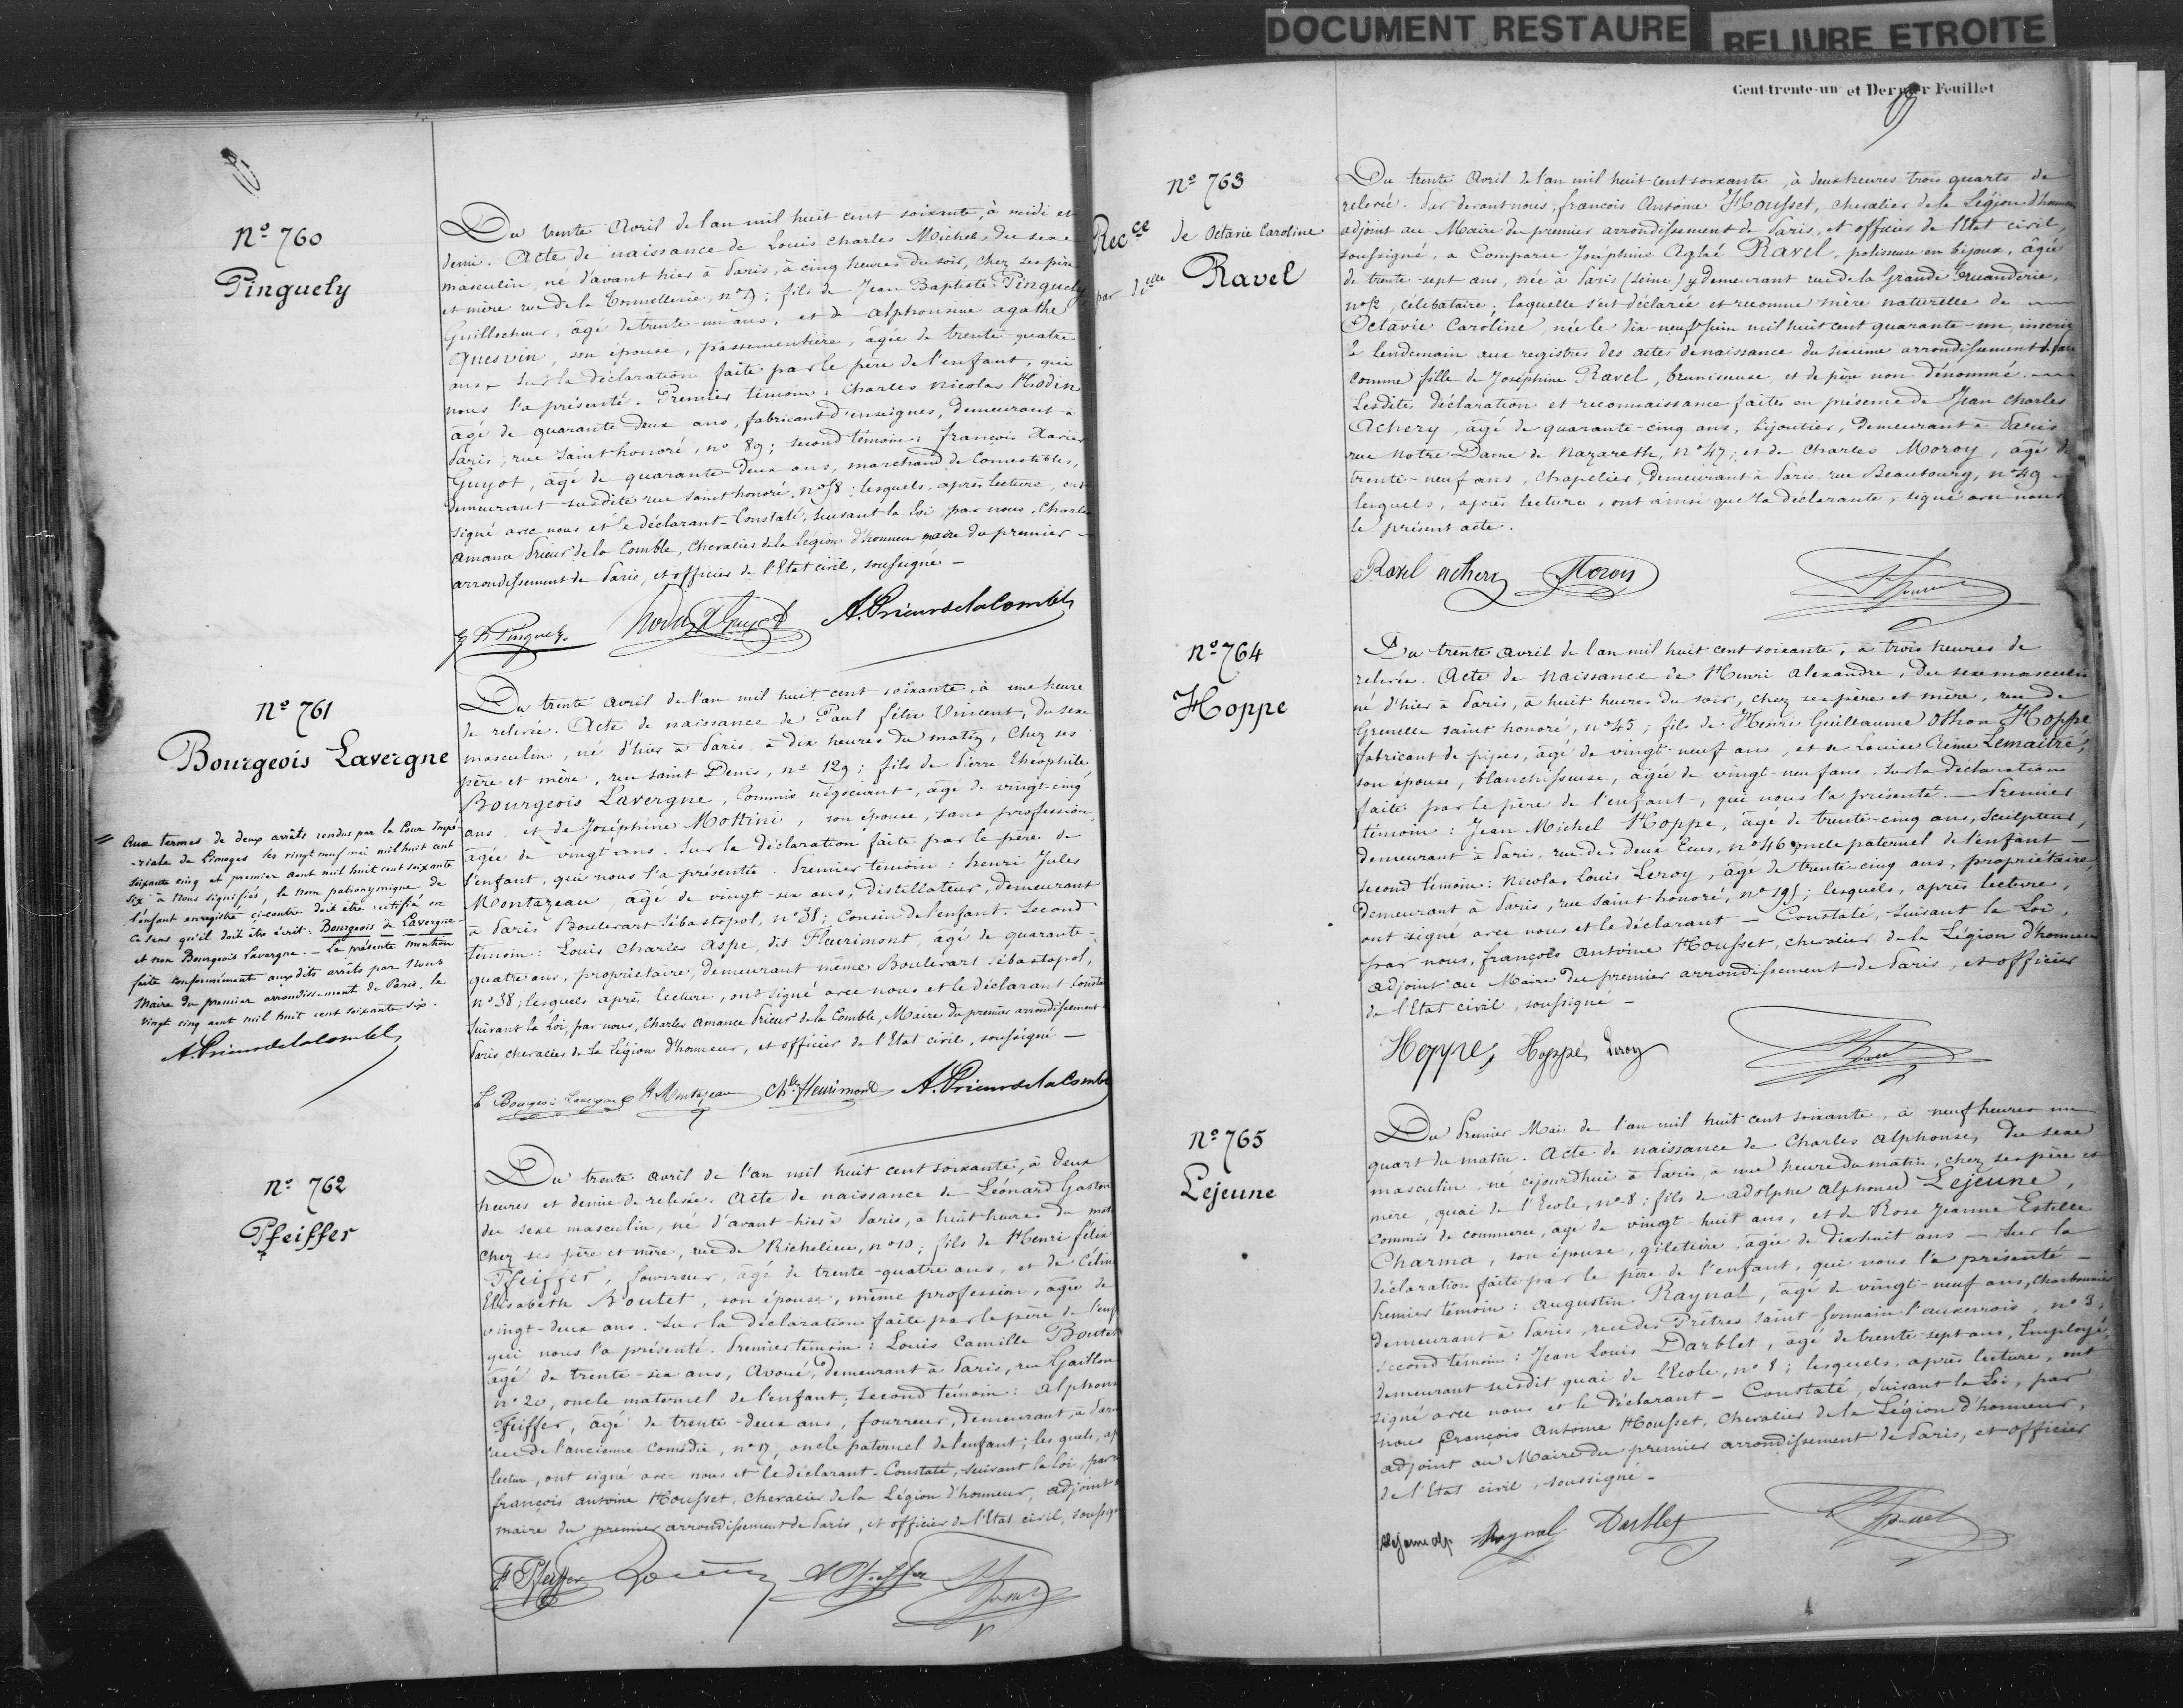 DOCUMENT RESTAURE
RELIURE ETROITE
Nº 760
Pinguely
Du trente Avril de l'an mil huit cent soixante, à midi et
demi. Acte de naissance de Louis Charles Michel, du sexe
masculin, né d'avant hier à Paris, à cinq heures du soir, chez ses père
et mère rue de la Tonnellerie, nº 9; fils de Jean Baptiste Pinguely,
Guillocheur, âgé de trente-un ans, et de Alphonsine agathe
Quesvin, son épouse, passementière, âgée de trente quatre
ans - Sur la déclaration faite par le père de l'enfant, qui
nous l'a présenté. Premier témoin, Charles Nicolas Hodin
âgé de quarante deux ans, fabricant d'enseignes, demeurant à
Paris, rue Saint honoré, nº 89; second témoin: françois Xavier
Guyot, âgé de quarante-deux ans, marchand de Comestibles,
demeurant susdite rue Saint honoré, nº 58; lesquels, après lecture, ont
signé avec nous et le déclarant - Constaté, suivant la Loi, par nous, Charles
Amance Prieur de la Comble, Chevalier de la Légion d'honneur maire du premier -
arrondissement de Paris, et officier de l'Etat civil, soussigné -
J B Pinguely Hodin X Guyot A. Prieur de la Comble
Nº 761
Bourgeois Lavergne
Du trente avril de l'an mil huit cent soixante, à une heure
de relevée. Acte de naissance de Paul félix Vincent, du sexe
masculin, né d'hier à Paris, à dix heures du matin, chez ses
père et mère, rue saint Denis, nº 129; fils de Pierre Théophile
Bourgeois Lavergne, Commis négociant, âgé de vingt-cinq
ans, et de Joséphine Mottini, son épouse, sans profession,
âgée de vingt ans. Sur la déclaration faite par le père de
l'enfant, qui nous l'a présenté. Premier témoin: henri Jules
Montazeau, âgé de vingt-six ans, distillateur, demeurant
à Paris Boulevart Sébastopol, nº 38; Cousin de l'enfant. Second
témoin: Louis Charles Aspe, dit Fleurimont, âgé de quarante-
quatre ans, propriétaire, demeurant même Boulevart sébastopol,
nº 38; lesquels après lecture, ont signé avec nous et le déclarant. Consta
Suivant la Loi, par nous, Charles Amance Prieur de la Comble, Maire du premier arrondissement
Paris, chevalier de la Légion d'honneur, et officier de l'Etat civil, soussigné -
Bourgeois Lavergne H Montazeau Chles fleurimont A. Prieur de la Comble
= Aux termes de deux arrêts rendus par la Cour Impé-
-riale de Limoges les vingt neuf mai mil huit cent
soixante cinq et premier aout mil huit cent soixante
six à Nous signifiés, le nom patronymique de
l'enfant enregistré ci-contre doit être rectifié en
ce sens qu'il doit être écrit: Bourgeois de Lavergne
et non Bourgeois Lavergne. - La présente mention
faite conformément auxdits arrêts par Nous
Maire du premier arrondissement de Paris, le
vingt cinq aout mil huit cent soixante six.
A. Prieur de la Comble
Nº 762
Pfeiffer
Du trente avril de l'an mil huit cent soixante, à deux
heures et demie de relevée. Acte de naissance de Léonard Gaston
du sexe masculin, né d'avant-hier à Paris, à huit heures du mat
chez ses père et mère, rue de Richelieu, nº 10; fils de Henri félix
Pfeiffer, fourreur, âgé de trente-quatre ans, et de Célin
Elisabeth Boutet, son épouse, même profession, âgée de
vingt-deux ans. Sur la déclaration faite par le père de l'enf
qui nous l'a présenté. Premier témoin: Louis Camille Boutet
âgé de trente-six ans, Avoué, demeurant à Paris, rue Gaillon
nº 20, oncle maternel de l'enfant; second témoin: Alphons
Pfeiffer, âgé de trente-deux ans, fourreur, demeurant, à Paris
rue de l'ancienne Comédie, nº 17, oncle paternel de l'enfant; les quels, ap
lecture, ont signé avec nous et le déclarant - Constaté, suivant la Loi, par n
françois antoine Housset, chevalier de la Légion d'honneur, adjoint a
maire du premier arrondissement de Paris, et officier de l'Etat civil, soussig
F Pfeiffer A Pfeiffer
Cent-trente-un et Dernier Feuillet
Nº 763
Recce de Octavie Caroline
Ravel
par Delle
Du trente Avril de l'an mil huit cent soixante, à deux heures trois quarts de
relevée. Par devant nous, françois Antoine Housset, chevalier de la Légion d'honneur
adjoint au Maire du premier arrondissement de Paris, et officier de l'Etat civil,
soussigné, a Comparu Joséphine Aglaé Ravel, polisseuse en bijoux, âgée
de trente-sept ans, née à Paris (Seine) y demeurant rue de la Grande Truanderie,
nº 12, célibataire; laquelle s'est déclarée et reconnue mère naturelle de
Octavie Caroline, née le dix-neuf Juin mil huit cent quarante-un, inscrite
le lendemain aux registres des actes de naissance du sixième arrondissement de Paris
comme fille de Joséphine Ravel, brunisseuse, et de père non dénommé.
Lesdites déclaration et reconnaissance faites en présence de Jean Charles
Achery, âgé de quarante-cinq ans, bijoutier, demeurant à Paris
rue Notre Dame de Nazareth, nº 47; et de Charles Moroy, âgé de
trente-neuf ans, Chapelier, demeurant à Paris, rue Beaubourg, nº 49
lesquels, après lecture, ont ainsi que la déclarante, signé avec nous
le présent acte.
Ravel Achery Moroy
Nº 764
Hoppe
Du trente avril de l'an mil huit cent soixante, à trois heures de
relevée. Acte de naissance de Henri alexandre, du sexe masculin
né d'hier à Paris, à huit heures du soir, chez ses père et mère, rue de
Grenelle saint honoré, nº 45; fils de Henri Guillaume Othon Hoppe
fabricant de pipes, âgé de vingt-neuf ans, et de Louise Reine Lemaitre,
son épouse, blanchisseuse, âgée de vingt neuf ans. Sur la déclaration
faite par le père de l'enfant, qui nous l'a présenté. - Premier
témoin: Jean Michel Hoppe, âgé de trente-cinq ans, Sculpteur,
demeurant à Paris, rue des Deux Ecus, nº 46 oncle paternel de l'enfant -
Second témoin: Nicolas Louis Leroy, âgé de trente-cinq ans, propriétaire
demeurant à Paris, rue Saint honoré, nº 195; lesquels, après lecture,
ont signé avec nous et le déclarant - Constaté, suivant la Loi,
par nous, françois Antoine Housset, chevalier de la Légion d'honneur
adjoint au Maire du premier arrondissement de Paris, et officier
de l'Etat civil, soussigné -
Hoppe, Hoppe, Leroy
Nº 765
Lejeune
Du Premier Mai de l'an mil huit cent soixante, à neuf heures un
quart du matin. Acte de naissance de Charles Alphonse, du sexe
masculin né cejourdhui à Paris, à une heure du matin, chez ses père et
mère, quai de l'Ecole, nº 8; fils de Adolphe Alphonse Lejeune,
Commis de commerce, âgé de vingt huit ans, et de Rose Jeanne Estelle
Charma, son épouse, giletière, âgée de dix huit ans - Sur la
déclaration faite par le père de l'enfant, qui nous l'a présenté -
Premier témoin: augustin Raynal, âgé de vingt-neuf ans, Charbonnier
demeurant à Paris, rue des Prêtres Saint Germain l'auxerrois, nº 3;
second témoin: Jean Louis Darblet, âgé de trente-sept ans, Employé,
demeurant susdit quai de l'Ecole, nº 8; lesquels, après lecture, ont
signé avec nous et le déclarant - Constaté, suivant la Loi, par
nous françois Antoine Housset, Chevalier de la Légion d'honneur,
adjoint au Maire du premier arrondissement de Paris, et officier
de l'Etat civil, soussigné -
Lejeune alp. Raynal Darblet